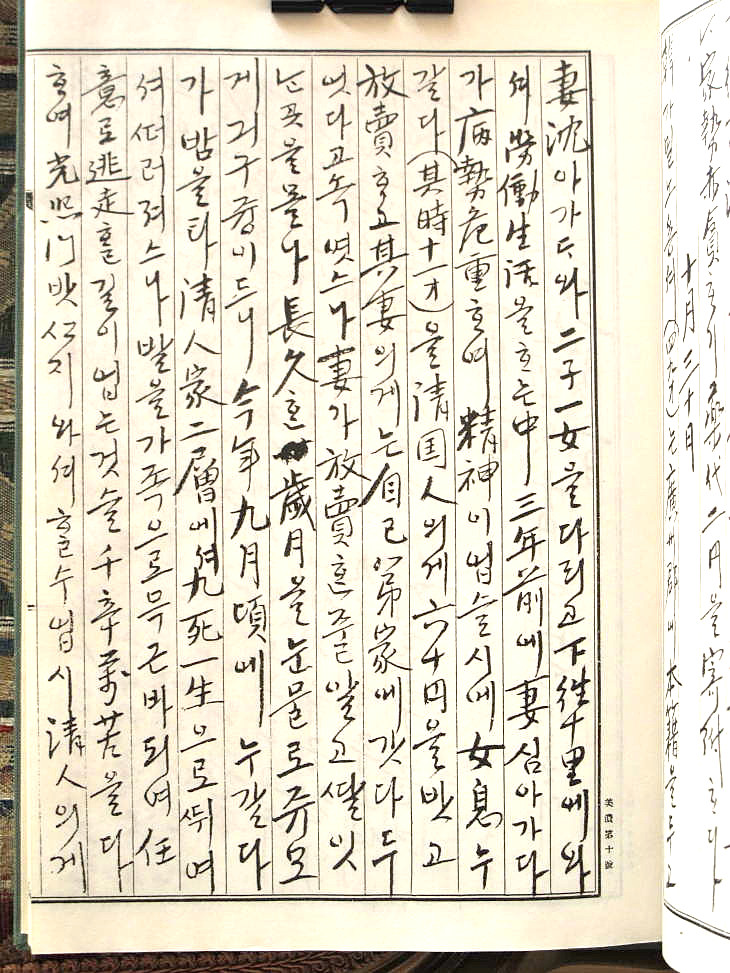 家勢赤貧ᄒᆞ기藥代二円을寄付ᄒᆞ다
十月三十日
妻沈아가다와二子一女을다리고下往十里에와
셔勞働生活을ᄒᆞ는中三年前에妻심아가다
가病勢危重ᄒᆞ여精神이업슬시에女息누
갈다(其時十一才)을淸国人의게六十円을밧고
放賣ᄒᆞ고其妻의게는自己弟家에갓다두
엇다고속엿스나妻가放賣ᄒᆞᆫ줄알고딸잇
는곳을몰나長久ᄒᆞᆫ歲月을눈물로쥬모
게긔구즁이드니今年九月頃에누갈다
가밤을타淸人家二層에셔九死一生으로뛰여
셔떠러져스나발을가족으로무근바되여任
意로逃走ᄒᆞᆯ길이업는것슬千辛萬苦을다
ᄒᆞ여光熙門밧ᄭᆞ지와셔ᄒᆞᆯ수업시淸人의게
美濃第十號